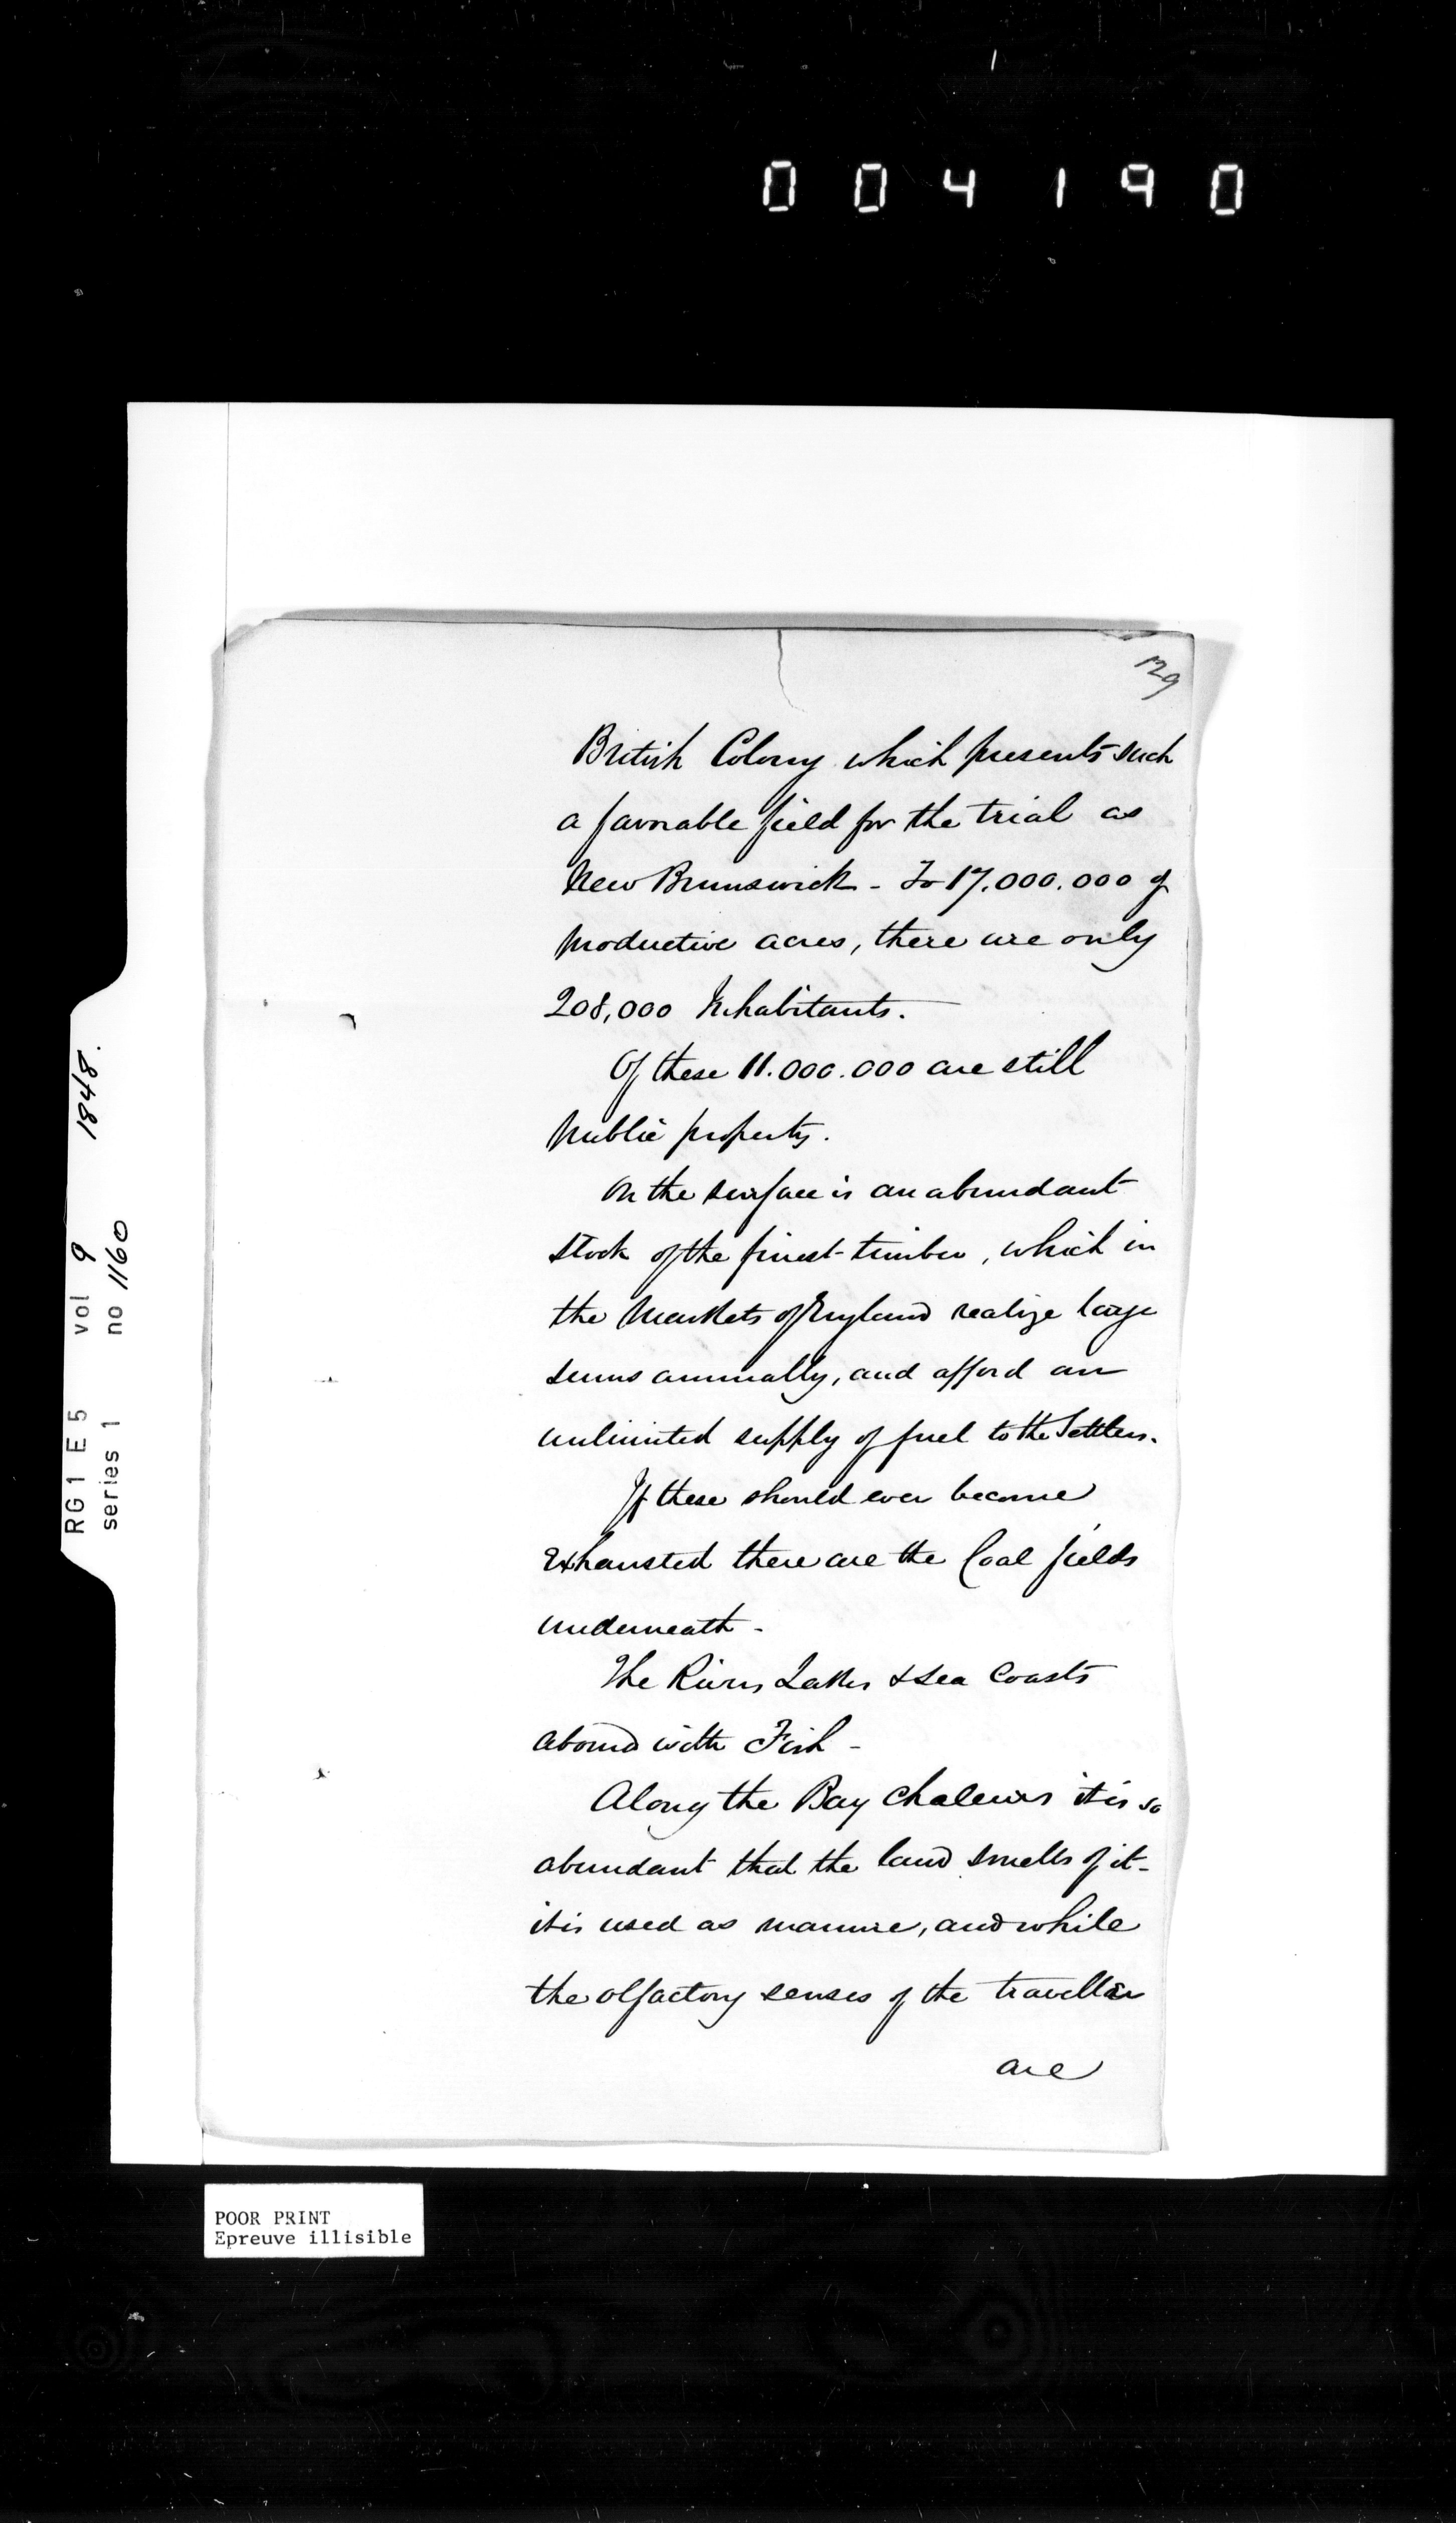 004190
129
British Colony which presents such
a favorable field for the trial as
New Brunswick - To 17.000.000 of
productive acres, there are only
208,000 Inhabitants.
Of these 11.000.000 are still
public property.
On the surface is an abundant
stock of the finest timber, which in
the Markets of England realize large
sums annually, and afford an
unlimited supply of fuel to the Settlers.
If these should ever become
exhausted there are the Coal fields
underneath -
The Rivers Lakes & Sea Coasts
abound with Fish -
Along the Bay Chaleurs it is so
abundant that the land smells of it -
it is used as manure, and while
the olfactory senses of the traveller
are
RG1 E5 vol 9 1848.
series 1 no 1160
POOR PRINT
Epreuve illisible